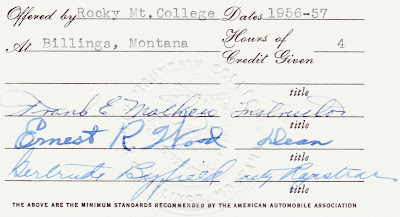 Offered by Rocky Mt. College Dates 1956-57
At Billings, Montana Hours of Credit Given 4
title
Frank E. Mathews Instructor
title
Ernest R Wood Dean
title
Gertrude Byfield
THE ABOVE ARE THE MINIMUM STANDARDS RECOMMENDED BY THE AMERICAN AUTOMOBILE ASSOCIATION